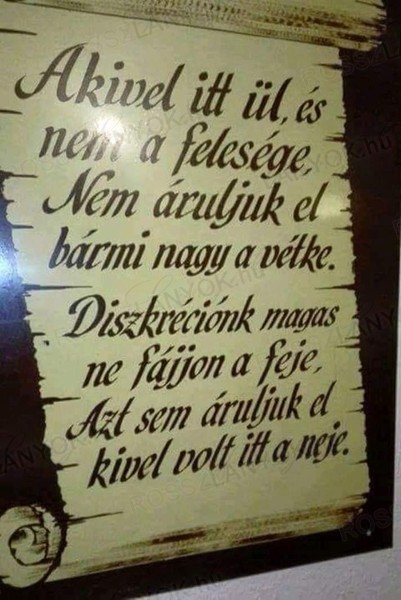 Akivel itt ül, és
nem a felesége,
Nem áruljuk el
bármi nagy a vétke.
Diszkréciónk magas
ne fájjon a feje,
Azt sem áruljuk el
kivel volt itt a neje.